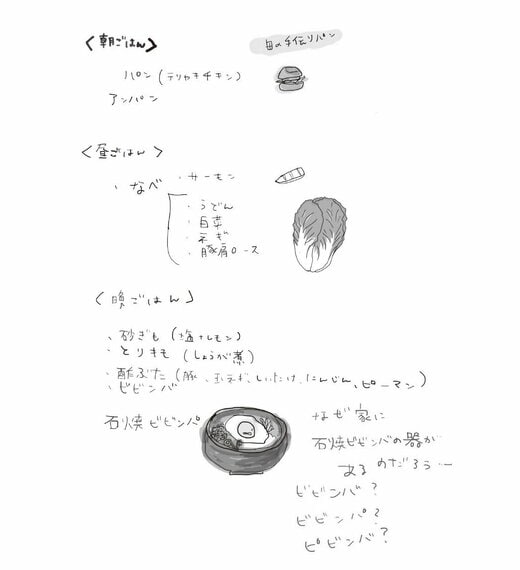 <朝ごはん>
母の手伝リパン
パン(テリヤキチキン)
アンパン
<昼ごはん>
・なべ
・サーモン
・うどん
・白菜
・ネギ
・豚肩ロース
<晩ごはん>
・砂ぎも(塩+レモン)
・とりキモ(しょうが煮)
・酢ぶた(豚、玉ネギ、しいたけ、たんじん、ピーマン)
・ビビンバ
石焼ビビンバ
なぜ家に
石焼ビビンバの器が
あるのだろう…
ビビンバ?
ビビンパ?
ピビンバ?